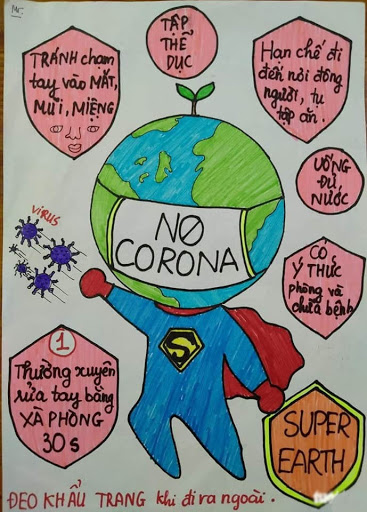 Mr.
TRÁNH chạm
tay vào MẮT,
MŨI, MIỆNG
TẬP
THỂ
DỤC
Hạn chế đi
đến nơi đông
người, tụ
tập ăn.
UỐNG
ĐỦ
NƯỚC
VIRUS
NO
CORONA
CÓ
Ý THỨC
phòng và
chữa bệnh
S
1
Thường xuyên
rửa tay bằng
XÀ PHÒNG
30s
SUPER
EARTH
ĐEO KHẨU TRANG khi đi ra ngoài.